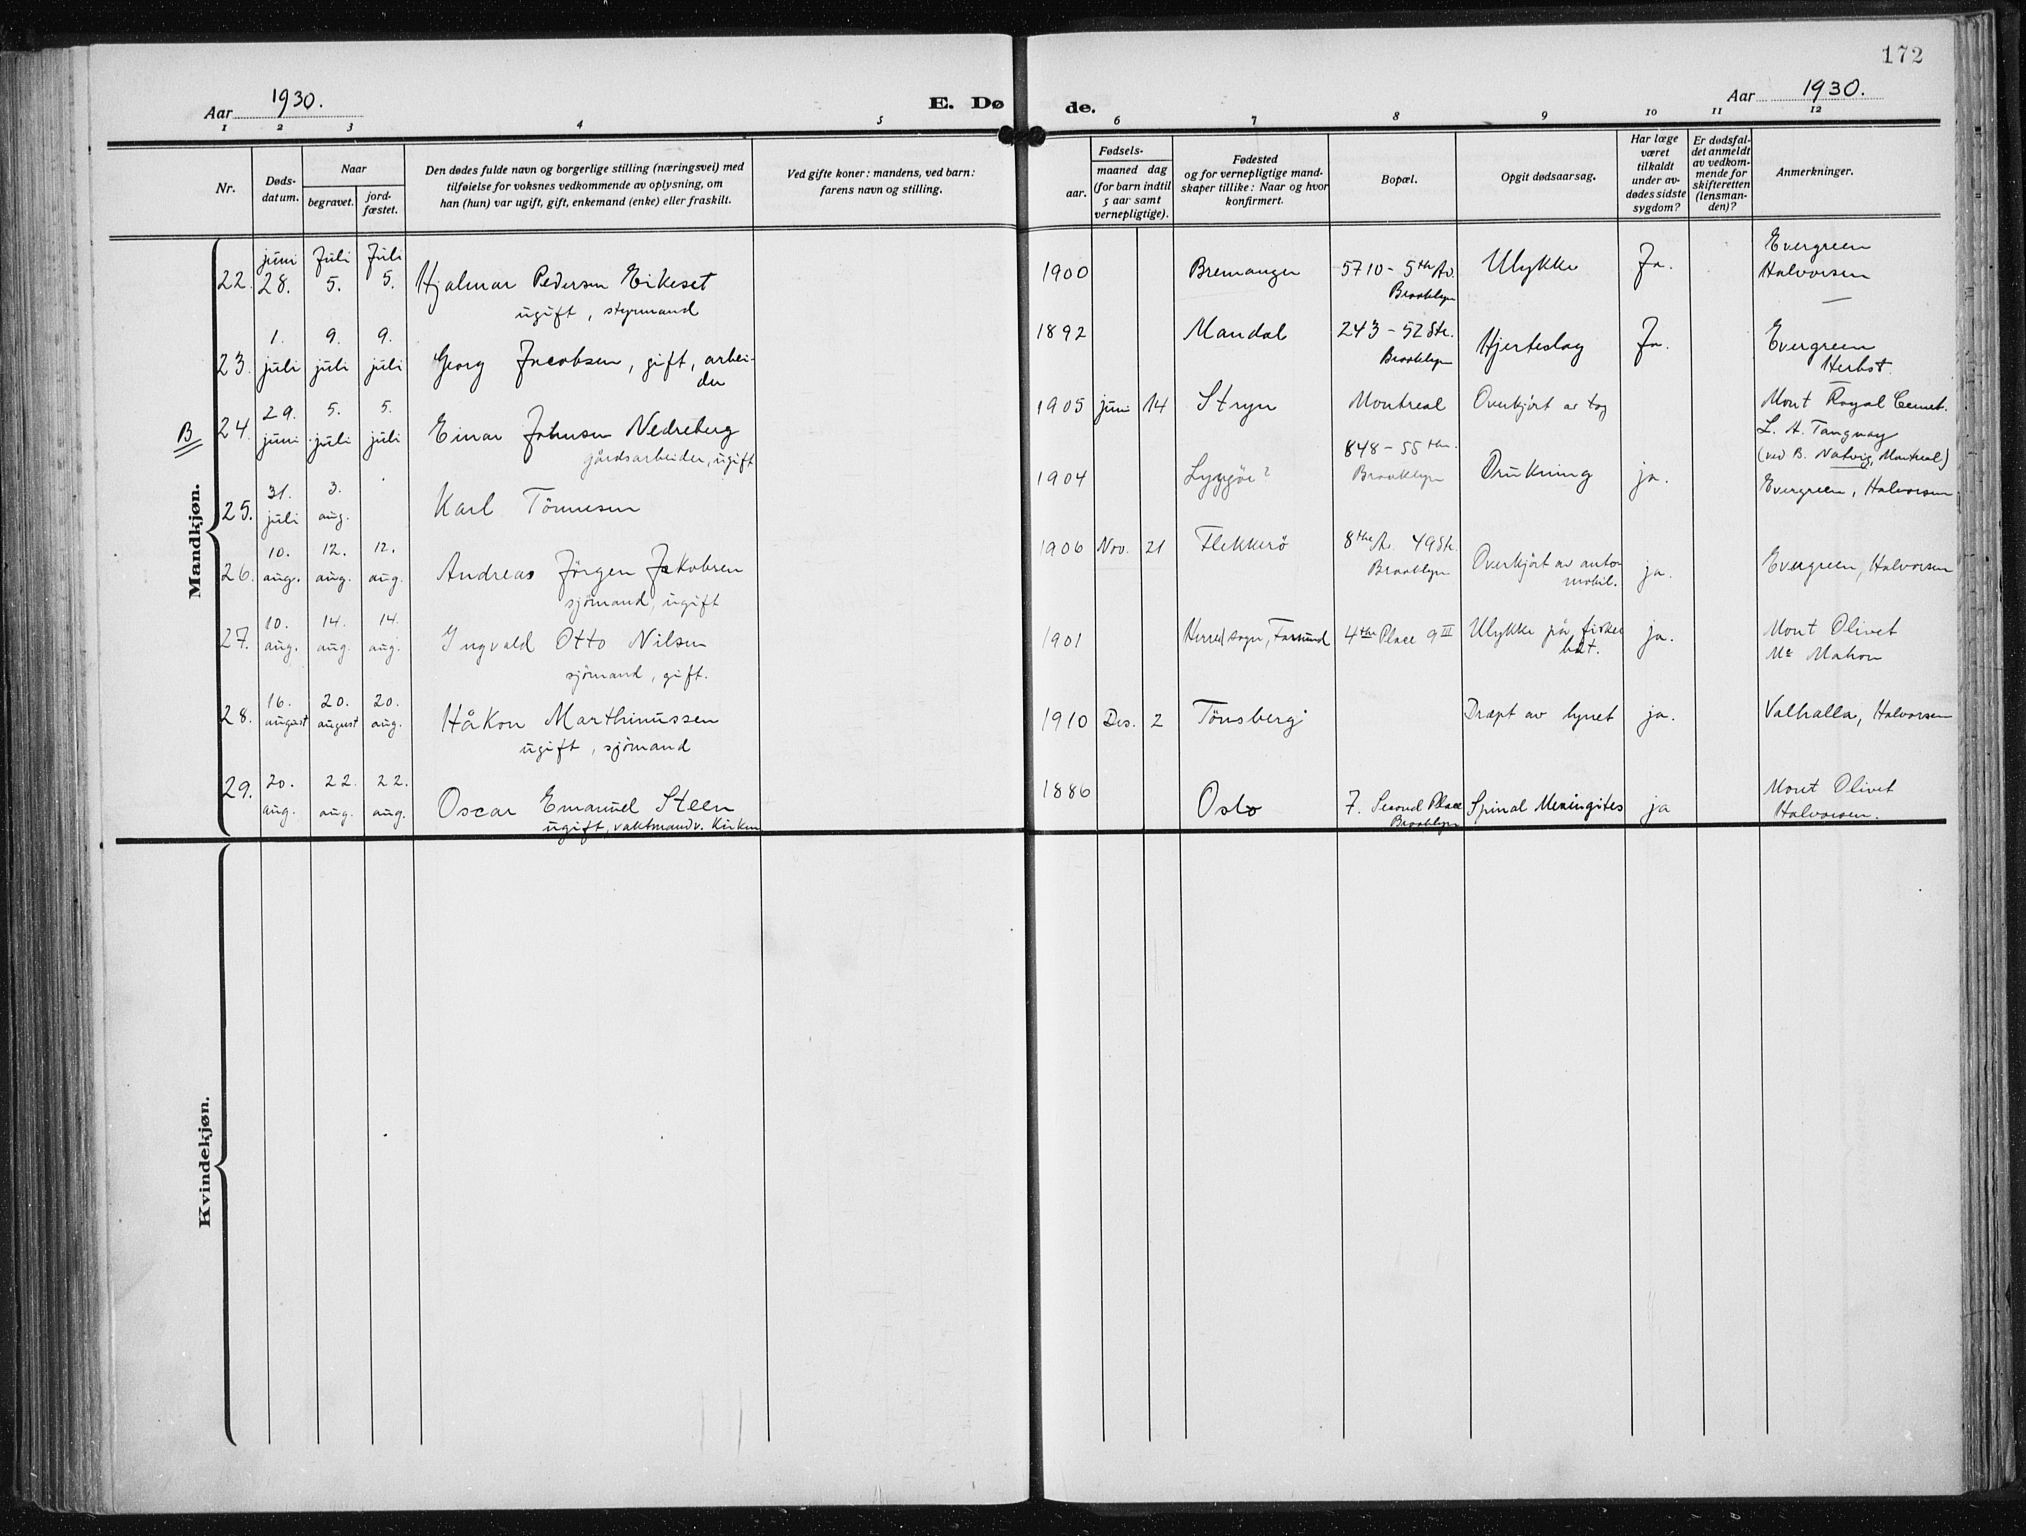 172
Aar 1930.
E. Dø de.
Aar 1930.
1 2 3 4 5 6 7 8 9 10 11 12
Nr.
Døds-
datum.
Naar
begravet.
jord-
fæstet.
Den dødes fulde navn og borgerlige stilling (næringsvei) med
tilføielse for voksnes vedkommende av oplysning, om
han (hun) var ugift, gift, enkemand (enke) eller fraskilt.
Ved gifte koner: mandens, ved barn:
farens navn og stilling.
Fødsels-
aar.
maaned dag
(for barn indtil
5 aar samt
vernepligtige).
Fødested
og for vernepligtige mand-
skaper tillike: Naar og hvor
konfirmert.
Bopæl.
Opgit dødsaarsag.
Har læge
været
tilkaldt
under av-
dødes sidste
sygdom?
Er dødsfal-
det anmeldt
av vedkom-
mende for
skifteretten
(lensman-
den)?
Anmerkninger.
Mandkjøn.
22. juni 28. Juli 5. Juli 5. Hjalmar Pedersen Eikeset
ugift, styrmand
1900 Bremanger 5710 - 5th Av. Brooklyn Ulykke Ja. Evergreen
Halvorsen
23. 1. juli 9. juli 9. juli Georg Jacobsen, gift, arbei-
der
1892 Mandal 243 - 52 Str. Brooklyn Hjerteslag Ja. Evergreen
Herbst.
B
24. 29. juni 5. juli 5. juli Einar Johnsen Nedreberg
gårdsarbeider, ugift
1905 juni 14 Stryn Montreal Overkjørt av tog Mont Royal Cemet.
L. A. Tanguay
(ved B. Natvig, Montreal)
25. 31. juli 3. aug. Karl Tönnesen
1904 Lyngöe? 848 - 55 th. Brooklyn Drukning ja. Evergreen, Halvorsen
26. 10. aug. 12. aug. 12. aug. Andreas Jörgen Jakobsen
sjömand, ugift
1906 Nov. 21 Flekkerö 8the Av. 49 Str. Brooklyn Overkjört av auto-
mobil. ja. Evergreen, Halvorsen
27. 10. aug. 14. aug. 14. aug. Ingvald Otto Nilsen
sjömand, gift.
1901 Herred sogn, Farsund 4the Place 9 II Ulykke på fisker
båt. ja. Mont Olivet
Mc Mahon
28. 16. august 20. august 20. aug. Håkon Marthinussen
ugift, sjömand
1910 Des. 2 Tönsberg Dræpt av lynet ja. Valhalla, Halvorsen
29. 20. aug. 22. aug. 22. aug. Oscar Emanuel Steen
ugift, vaktmand v. Kirken
1886 Oslo 7. Second Place Brooklyn Spinal Meningites ja Mont Olivet
Halvorsen.
Kvindekjøn.